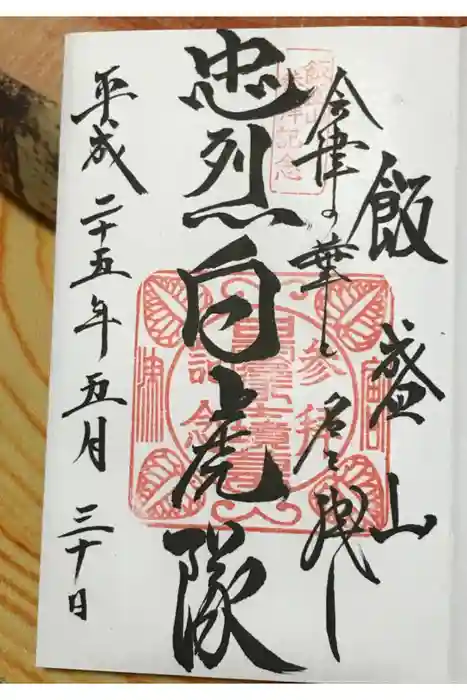 飯盛山
会津の華と名を残し
忠烈白虎隊
平成二十五年五月三十日
飯盛山
参拝記念
参拝
記念